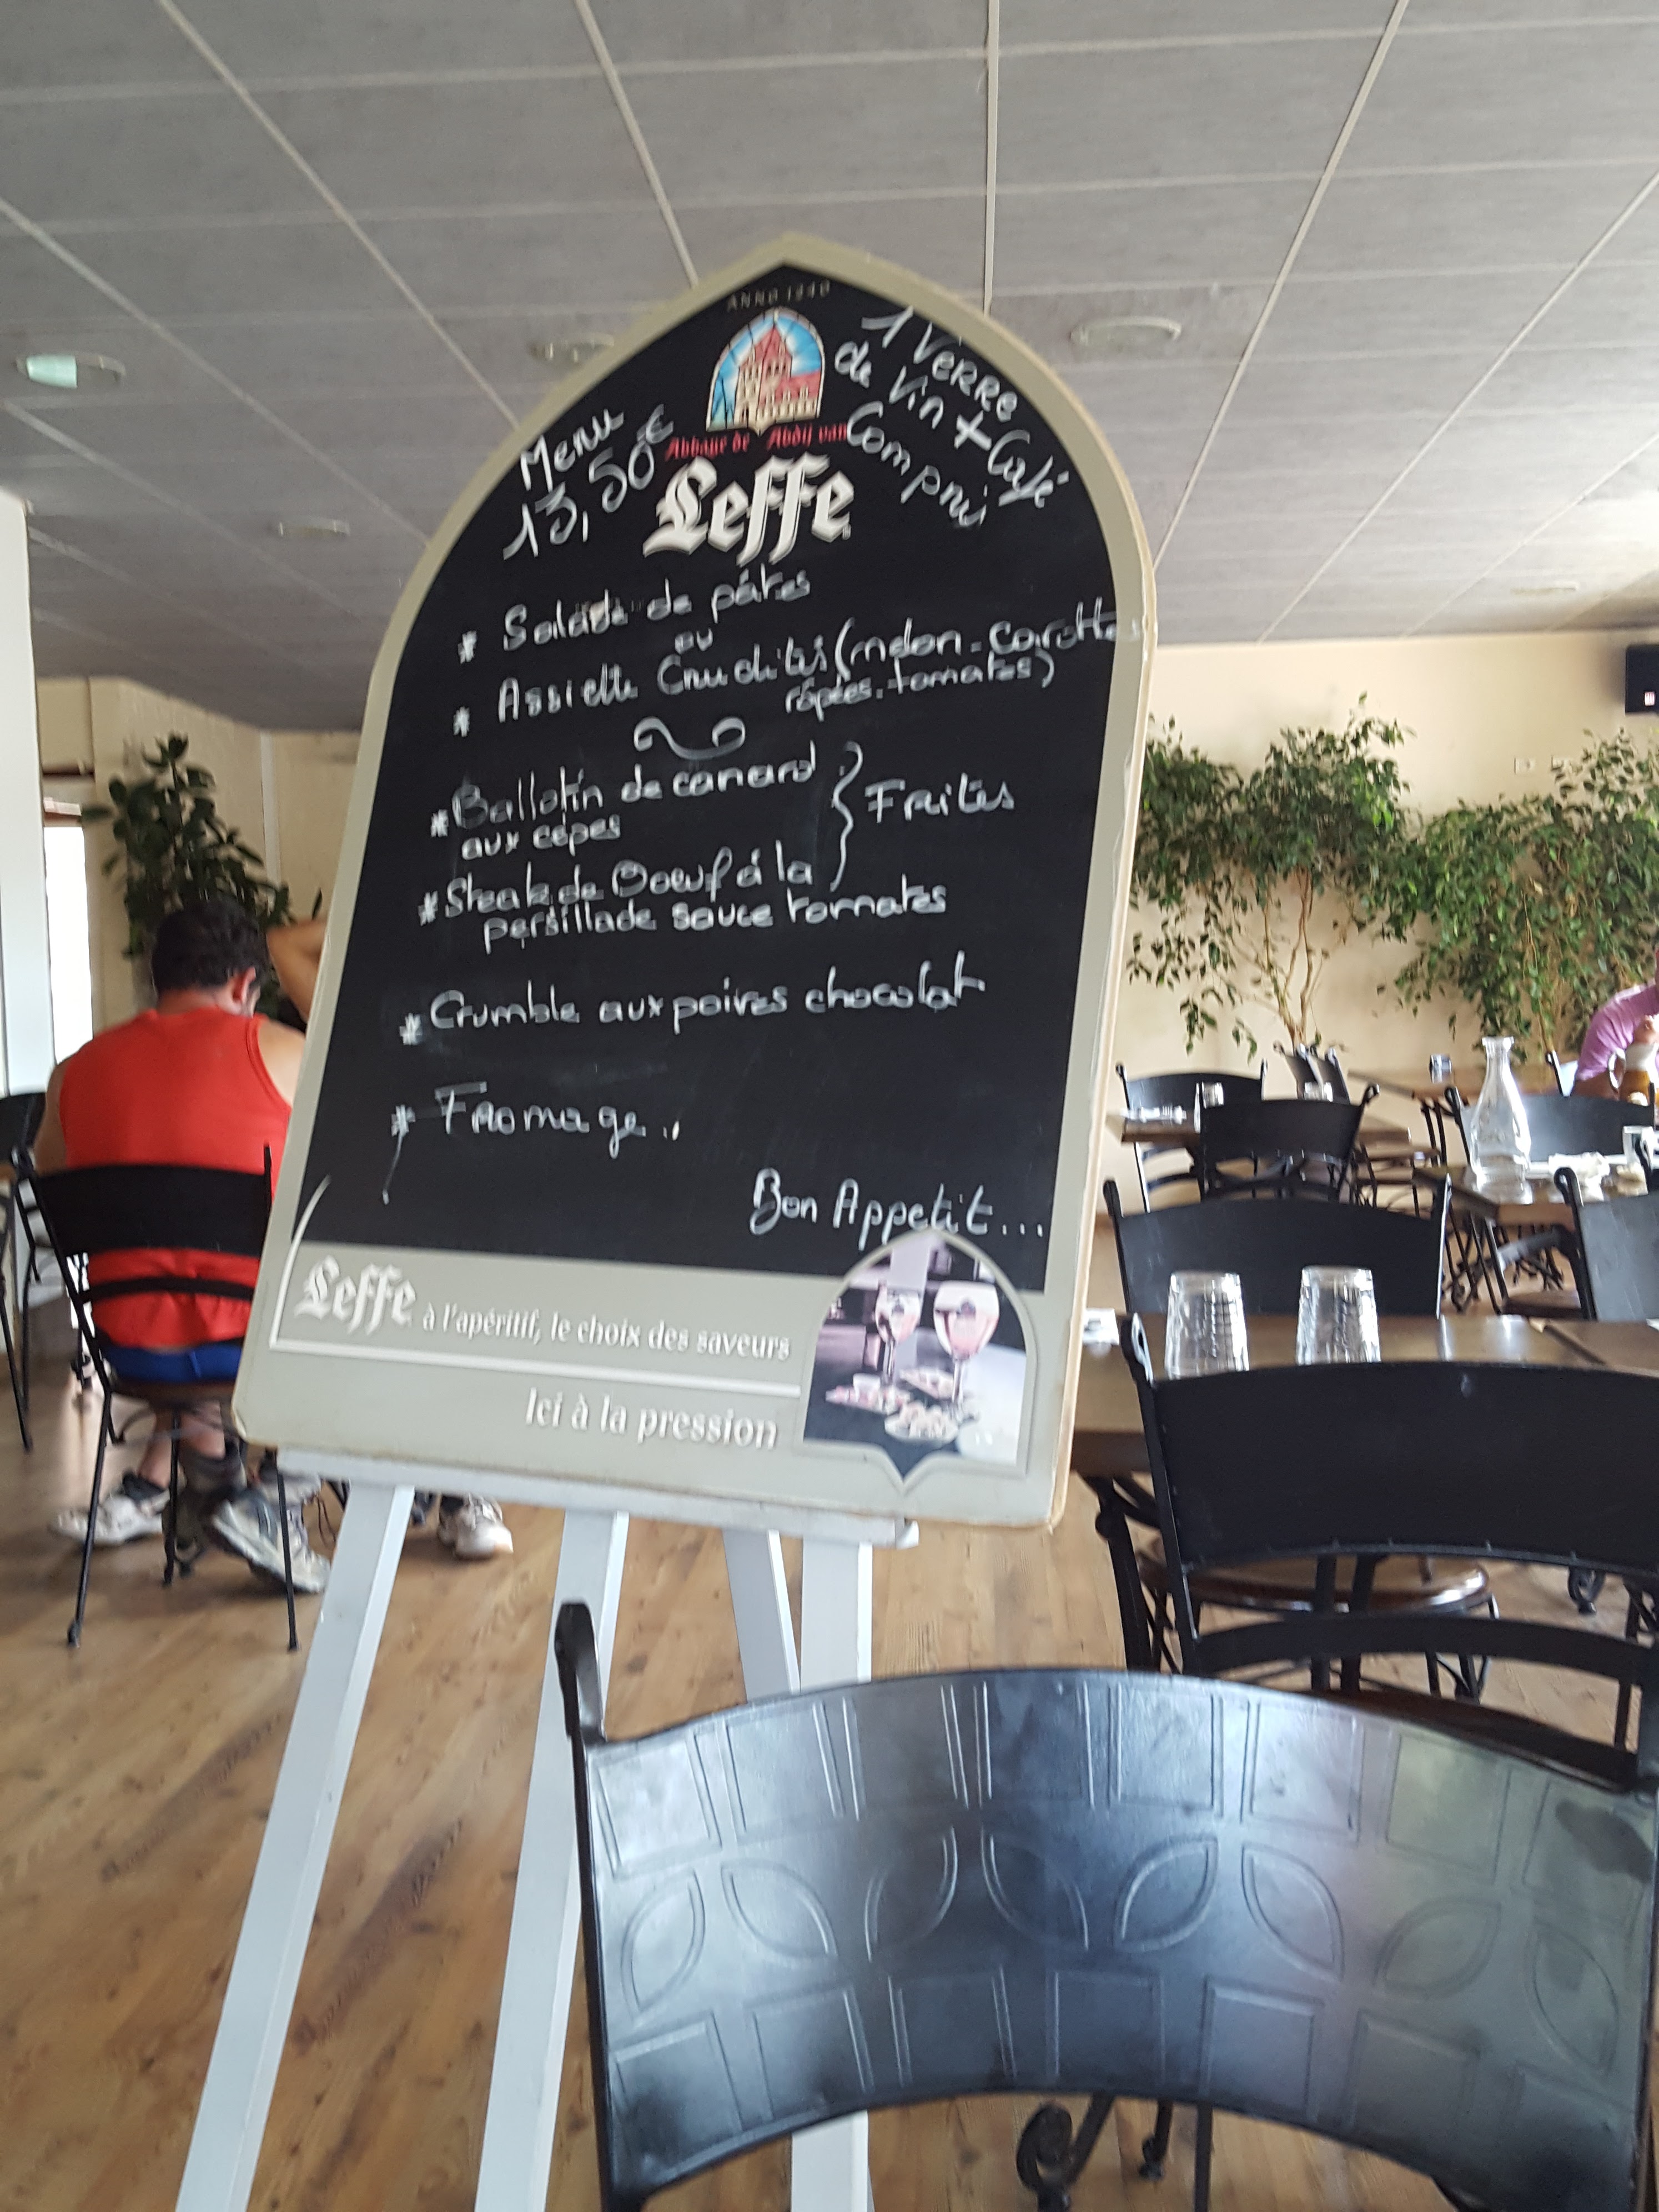 ANNO 1240
Menu
13,50€
1 Verre
de Vin + Café
Compris
Abbaye de Abdij van
Leffe
* Salade de pâtes
ou
* Assiette Crudités (melon - carottes
râpées - tomates)
* Ballotin de canard
aux cèpes
} Frites
* Steak de Boeuf à la
persillade sauce tomates
* Crumble aux poires chocolat
* Fromage..
Bon Appetit...
Leffe à l'apéritif, le choix des saveurs
Ici à la pression